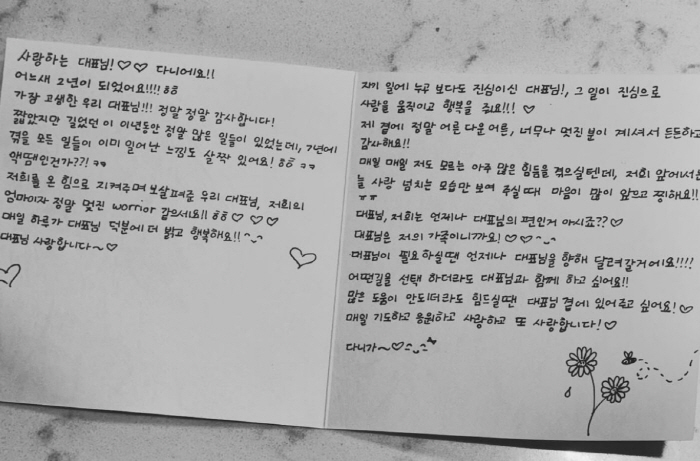 사랑하는 대표님! ♡♡ 다니에요!!
어느새 2년이 되었어요!!!! ㅎㅎ
가장 고생한 우리 대표님!!! 정말 정말 감사합니다!
짧았지만 길었던 이 이년동안 정말 많은 일들이 있었는데, 7년에
겪을 모든 일들이 이미 일어난 느낌도 살짝 있어요! ㅎㅎ ㅋㅋ
액땜인건가??! ㅋㅋ
저희를 온 힘으로 지켜주며 보살펴준 우리 대표님, 저희의
엄마이자 정말 멋진 worrior 같으세요!! ㅎㅎ ♡ ♡ ♡
매일 하루가 대표님 덕분에 더 밝고 행복해요!! ^_^
대표님 사랑합니다~ ♡
자기 일에 누구 보다도 진심이신 대표님!, 그 일이 진심으로
사람을 움직이고 행복을 줘요!!! ♡
제 곁에 정말 어른 다운 어른, 너무나 멋진 분이 계셔서 든든하고
감사해요!!
매일 매일 저도 모르는 아주 많은 힘듦을 겪으실텐데, 저희 앞에서는
늘 사랑 넘치는 모습만 보여 주실때 마음이 많이 아프고 찡해요!!
ㅠㅠ
대표님, 저희는 언제나 대표님의 편인거 아시죠?? ♡
대표님은 저의 가족이니까요! ♡♡ ^_^
대표님이 필요하실땐 언제나 대표님을 향해 달려갈거에요!!!!
어떤길을 선택 하더라도 대표님과 함께 하고 싶어요!!
많은 도움이 안되더라도 힘드실땐 대표님 곁에 있어주고 싶어요! ♡
매일 기도하고 응원하고 사랑하고 또 사랑합니다! ♡
다니가~ ♡